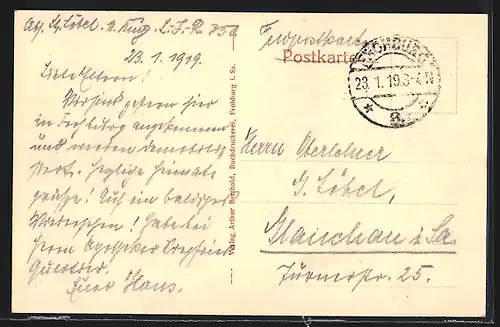 23.1.1919.
Liebe Eltern!
Wir sind gestern hier
in Frohburg angekommen
und werden demobilis
Herzliche Heimats
grüsse! Auf ein baldiges
Wiedersehen!
Herrn Apotheker
Quartier.
Euer Hans.
Verlag Arthur Berthold, Buchdruckerei, Frohburg i. Sa.
Feldpostkarte
Postkarte
FROHBURG
23.1.19.3-4N
* a *
Herrn Oberlehrer
G. Löbel,
Glauchau i. Sa.
Turnerstr. 25.